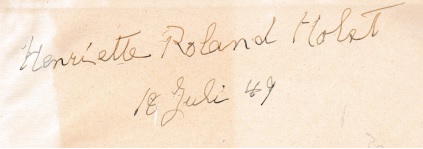 Henriette Roland Holst
18 Juli 49